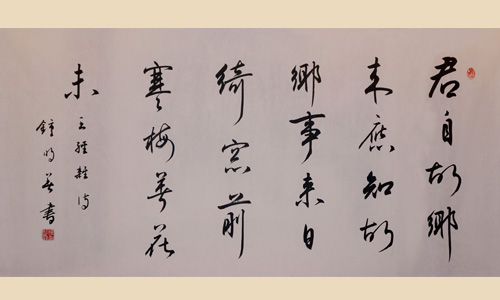 君自故鄉
来應知故
鄉事来日
綺窓前
寒梅著花
未 王維雜詩
鐘明善書